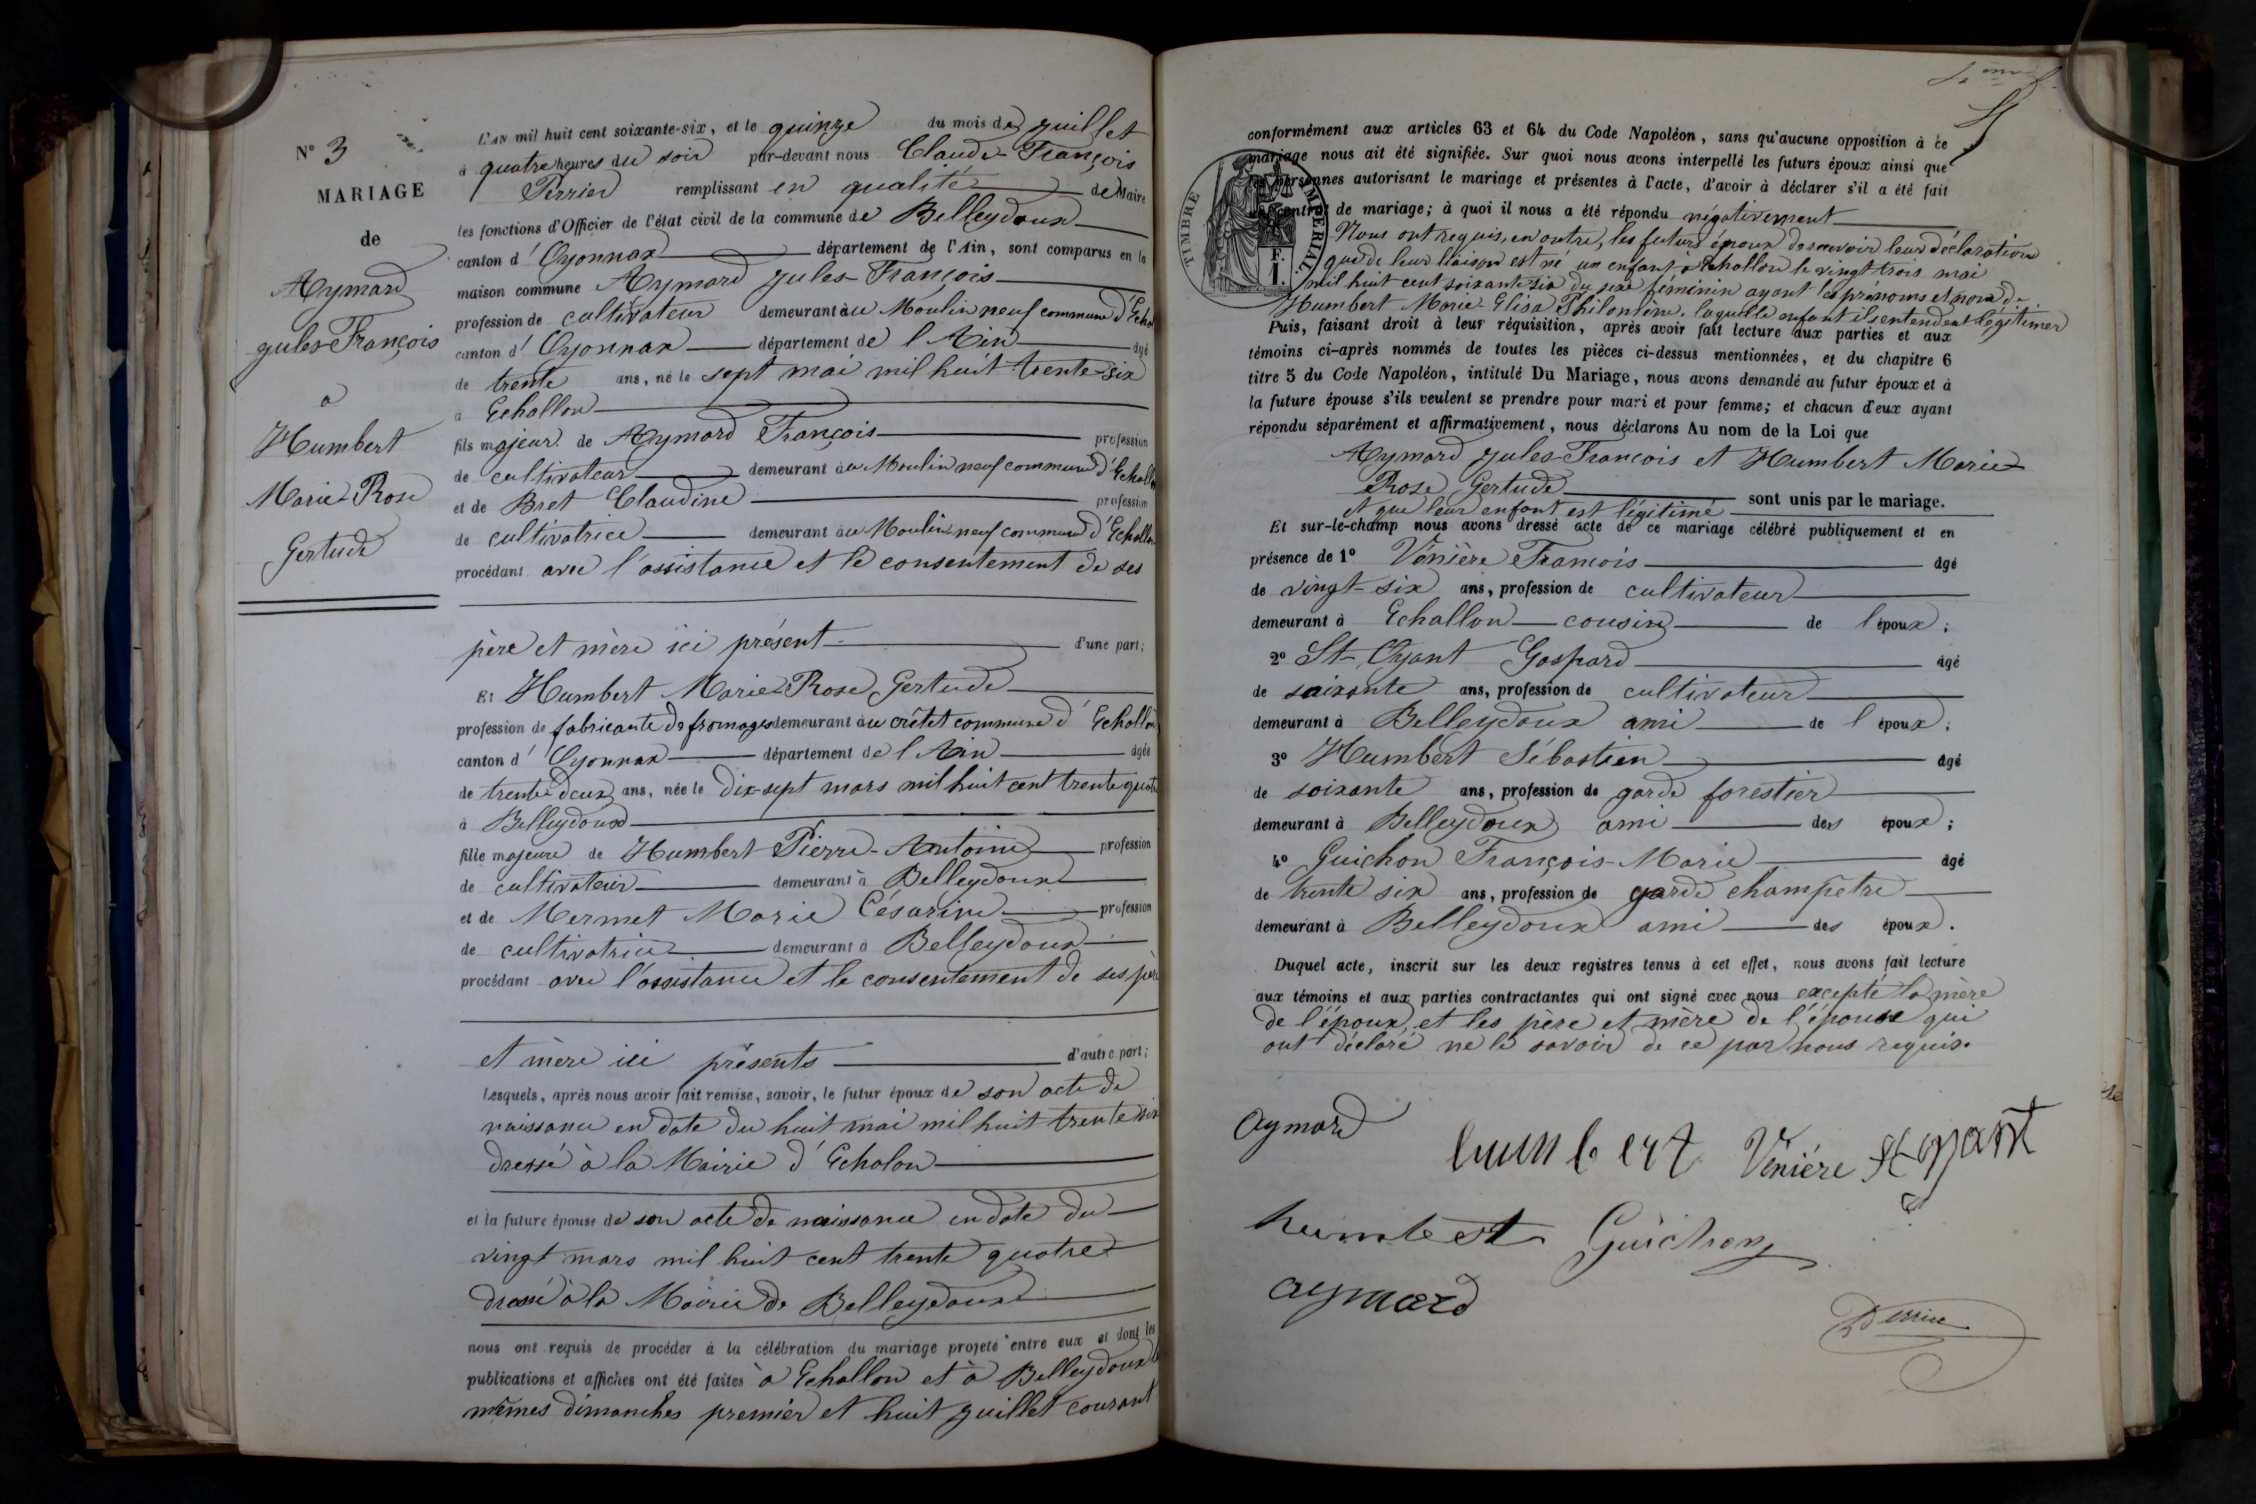 N° 3
MARIAGE
de
Aymard
Jules François
à
Humbert
Marie Rose
Gertude
L'AN mil huit cent soixante-six, et le quinze du mois de Juillet
à quatre heures du soir par-devant nous Claude François
Perrier remplissant en qualité de Maire
les fonctions d'Officier de l'état civil de la commune de Belleydoux
canton d'Oyonnax département de l'Ain, sont comparus en la
maison commune Aymard Jules François
profession de cultivateur demeurant au Moulin neuf commune d'Echal
canton d'Oyonnax département de l'Ain âgé
de trente ans, né le sept mai mil huit trente-six
à Echallon
fils majeur de Aymard François profession
de cultivateur demeurant au Moulin neuf commune d'Echall
et de Bret Claudine profession
de cultivatrice demeurant au Moulin neuf commune d'Echallon
procédant avec l'assistance et le consentement de ses
père et mère ici présent d'une part;
Et Humbert Marie Rose Gertude
profession de fabricante de fromages demeurant au crêtet commune d'Echallon
canton d'Oyonnax département de l'Ain âgée
de trente deux ans, née le dix-sept mars mil huit cent trente quatr
à Belleydoux
fille majeure de Humbert Pierre-Antoine profession
de cultivateur demeurant à Belleydoux
et de Mermet Marie Césarine profession
de cultivatrice demeurant à Belleydoux
procédant avec l'assistance et le consentement de ses père
et mère ici présents d'autre part;
Lesquels, après nous avoir fait remise, savoir, le futur époux de son acte de
naissance en date du huit mai mil huit trente six
dressé à la Mairie d'Echalon
et la future épouse de son acte de naissance en date du
vingt mars mil huit cent trente quatre
dressé à la Mairie de Belleydoux
nous ont requis de procéder à la célébration du mariage projeté entre eux et dont les
publications et affiches ont été faites à Echallon et à Belleydoux
mêmes dimanches premier et huit Juillet courant
conformément aux articles 63 et 64 du Code Napoléon, sans qu'aucune opposition à ce
mariage nous ait été signifiée. Sur quoi nous avons interpellé les futurs époux ainsi que
les personnes autorisant le mariage et présentes à l'acte, d'avoir à déclarer s'il a été fait
un contrat de mariage; à quoi il nous a été répondu négativement
TIMBRE IMPÉRIAL.
Nous ont requis, en outre, les futurs époux de recevoir leur déclaration
que de leur liaison est né un enfant à Echallon le vingt trois mai
mil huit cent soixante six du sexe féminin ayant les prénoms et nom de
Humbert Marie Elisa Philomène, laquelle enfant ils entendent légitimer
Puis, faisant droit à leur réquisition, après avoir fait lecture aux parties et aux
témoins ci-après nommés de toutes les pièces ci-dessus mentionnées, et du chapitre 6
titre 5 du Code Napoléon, intitulé Du Mariage, nous avons demandé au futur époux et à
la future épouse s'ils veulent se prendre pour mari et pour femme; et chacun d'eux ayant
répondu séparément et affirmativement, nous déclarons Au nom de la Loi que
Aymard Jules François et Humbert Marie
Rose Gertude sont unis par le mariage.
et que leur enfant est légitimé
Et sur-le-champ nous avons dressé acte de ce mariage célébré publiquement et en
présence de 1° Vénière François âgé
de vingt-six ans, profession de cultivateur
demeurant à Echallon cousin de l'époux;
2° St-Oyant Gaspard âgé
de soixante ans, profession de cultivateur
demeurant à Belleydoux ami de l'époux;
3° Humbert Sébastien âgé
de soixante ans, profession de garde forestier
demeurant à Belleydoux ami des époux;
4° Guichon François-Marie âgé
de trente six ans, profession de garde champetre
demeurant à Belleydoux ami des époux.
Duquel acte, inscrit sur les deux registres tenus à cet effet, nous avons fait lecture
aux témoins et aux parties contractantes qui ont signé avec nous excepté la mère
de l'époux, et les père et mère de l'épouse qui
ont déclaré ne le savoir de ce par nous requis.
Aymard
humbert Vénière St-oyant
humbert Guichon
aymard
Perrier